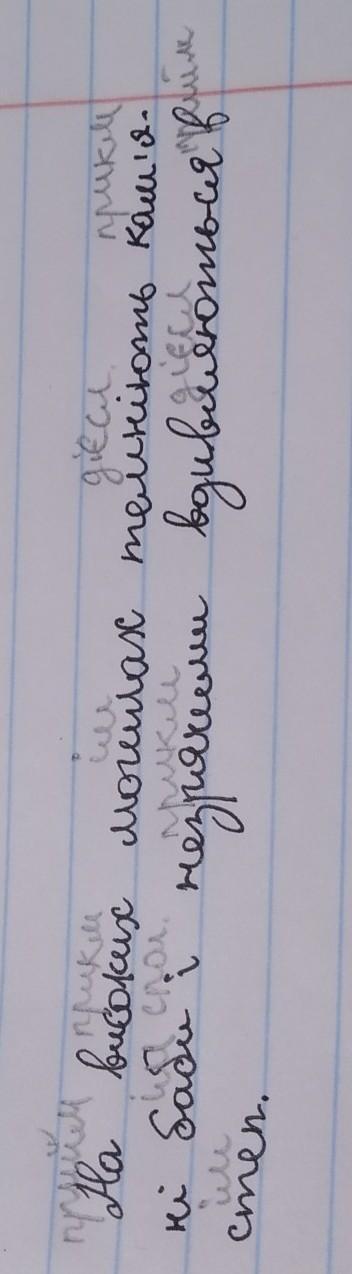 прийм прикм ім дієсл. прикм
На високих могилах темніють кам'я-
ім спол. прикм дієсл прийм
ні баби і незрячими вдивляються в
ім
степ.